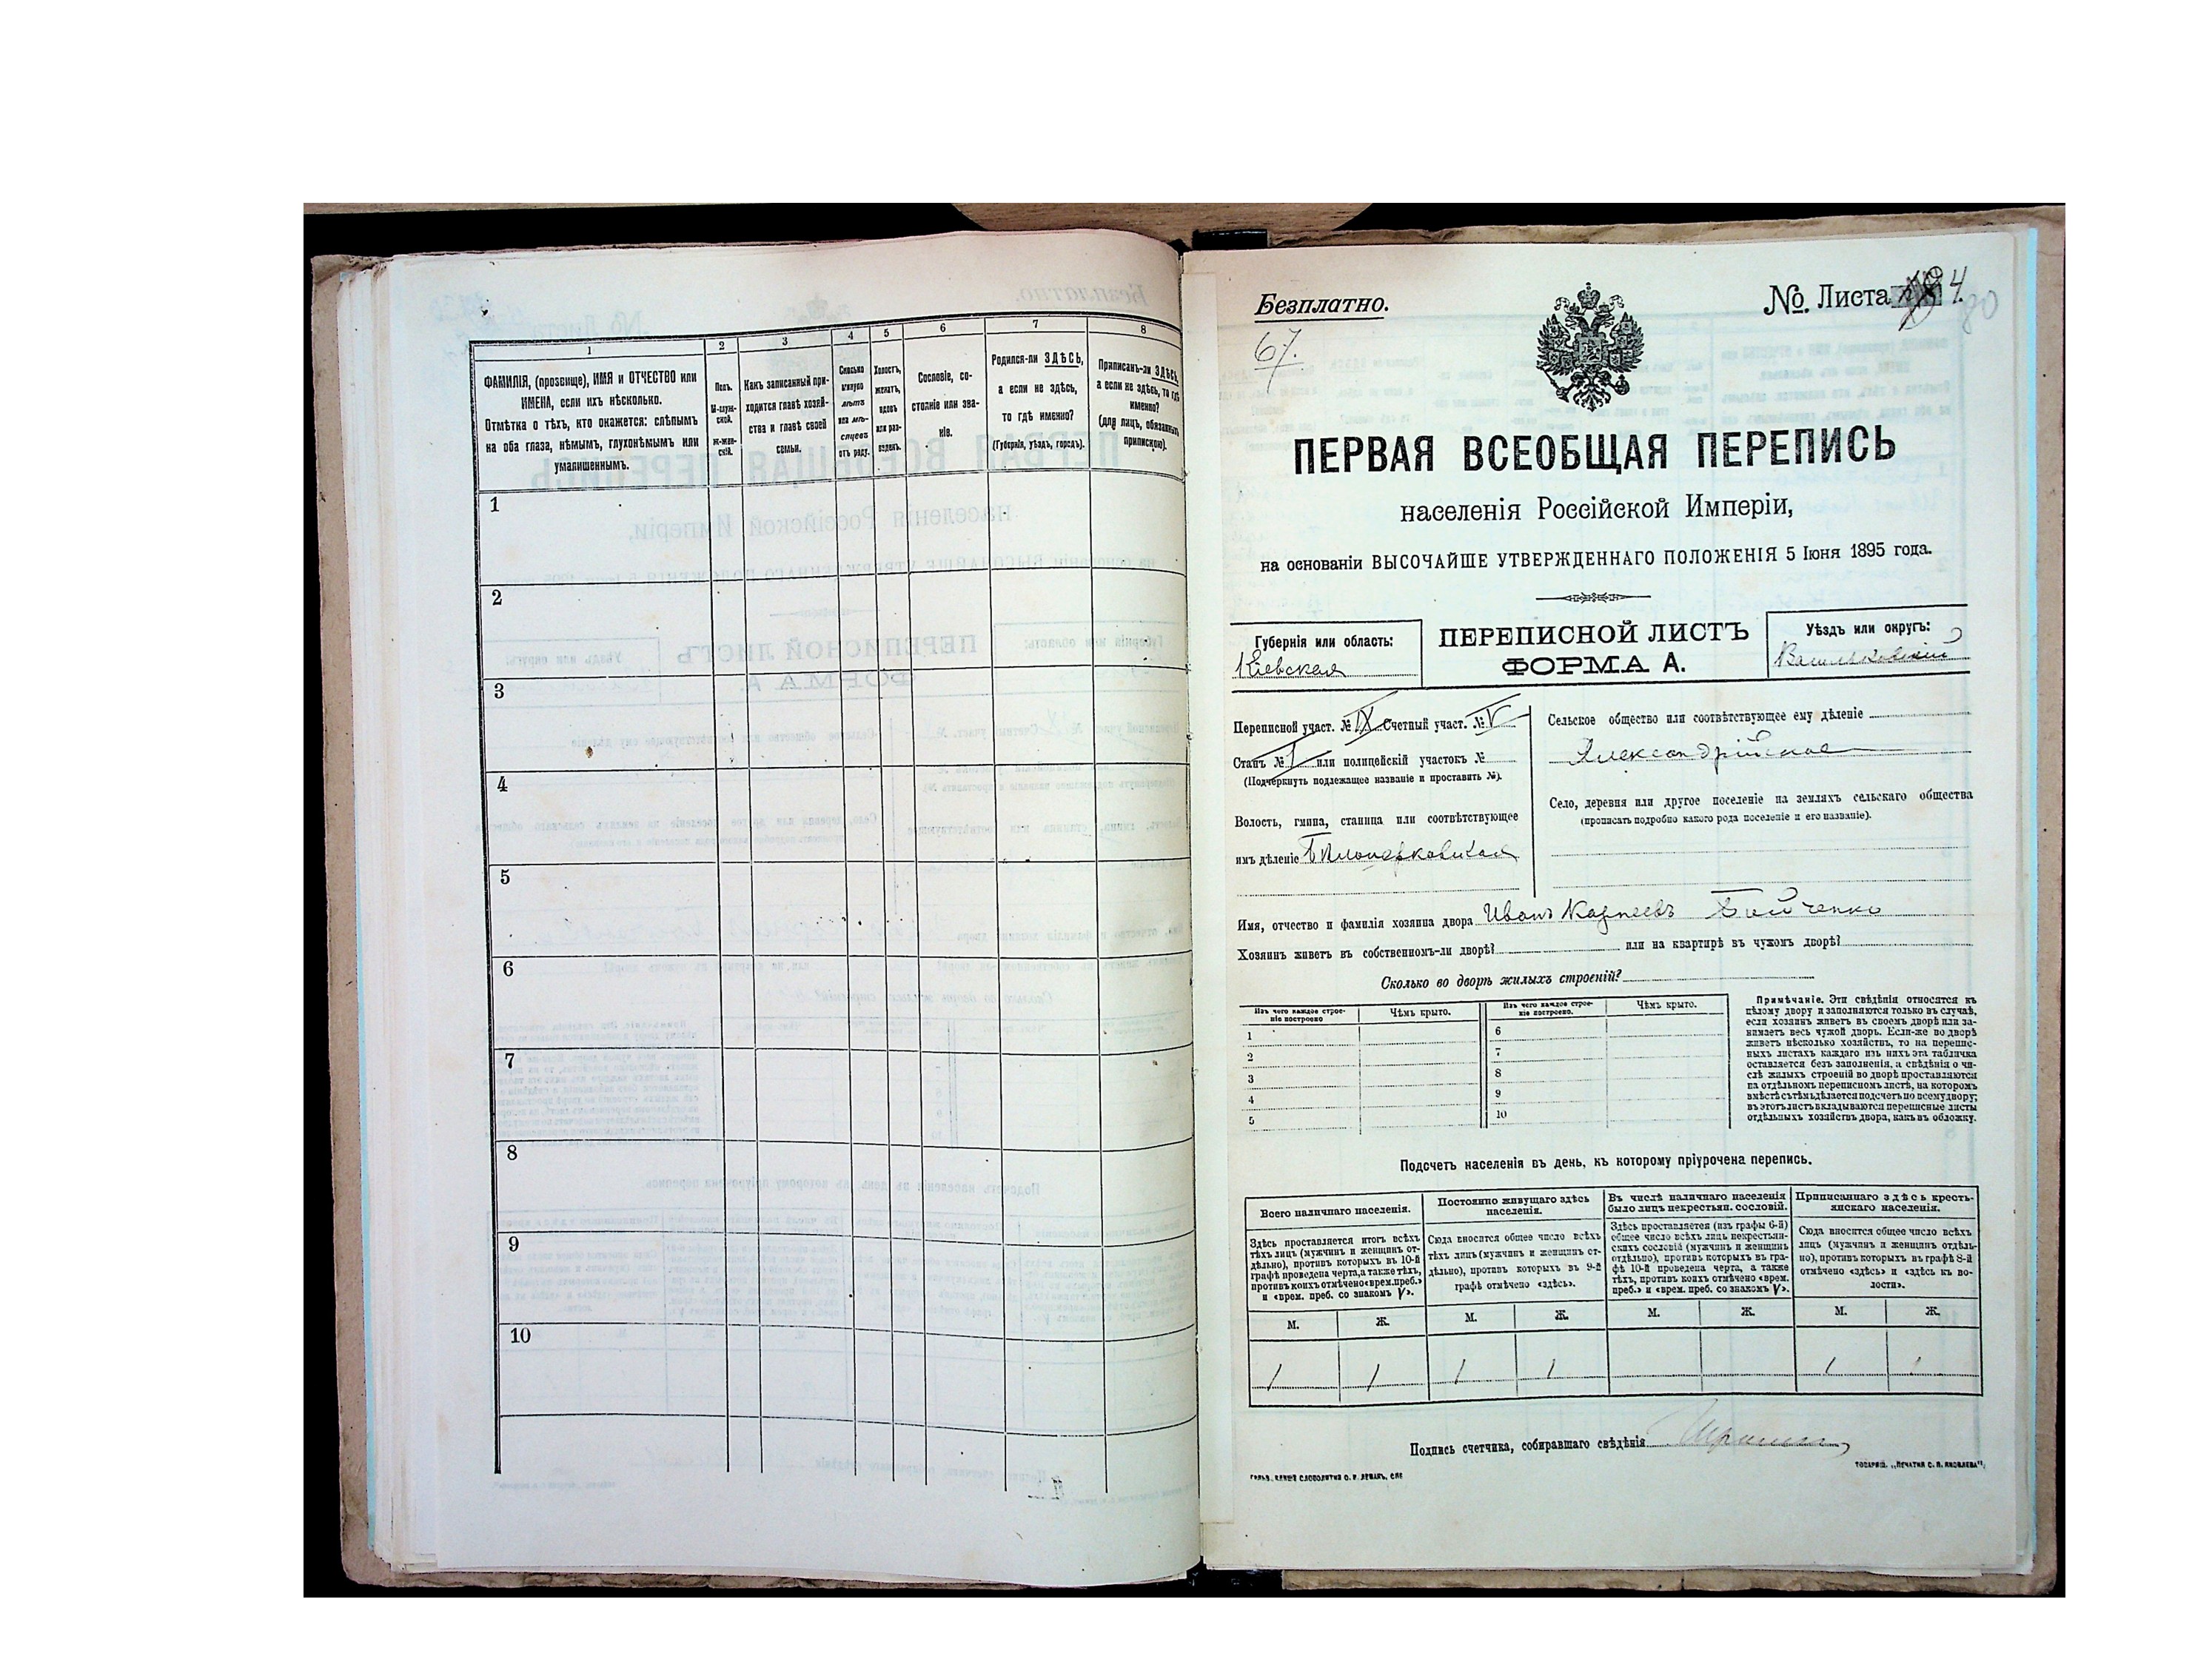 1 2 3 4 5 6 7 8
ФАМИЛІЯ, (прозвище), ИМЯ и ОТЧЕСТВО или
ИМЕНА, если ихъ нѣсколько.
Отмѣтка о тѣхъ, кто окажется: слѣпымъ
на оба глаза, нѣмымъ, глухонѣмымъ или
умалишеннымъ.
Полъ.
М-муж-
ской.
ж-жен-
скій.
Какъ записанный при-
ходится главѣ хозяй-
ства и главѣ своей
семьи.
Сколько
минуло
лѣтъ
или мѣ-
сяцевъ
отъ роду.
Холостъ,
женатъ,
вдовъ
или раз-
веденъ.
Сословіе, со-
стояніе или зва-
ніе.
Родился-ли ЗДѢСЬ,
а если не здѣсь,
то гдѣ именно?
(Губернія, уѣздъ, городъ).
Приписанъ-ли ЗДѢСЬ,
а если не здѣсь, то гдѣ
именно?
(для лицъ, обязанныхъ
припискою).
1
2
3
4
5
6
7
8
9
10
Безплатно.
67.
№. Листа 4.
80
ПЕРВАЯ ВСЕОБЩАЯ ПЕРЕПИСЬ
населенія Россійской Имперіи,
на основаніи ВЫСОЧАЙШЕ УТВЕРЖДЕННАГО ПОЛОЖЕНІЯ 5 Іюня 1895 года.
Губернія или область:
Кіевская
ПЕРЕПИСНОЙ ЛИСТЪ
ФОРМА А.
Уѣздъ или округъ:
Васильковскій
Переписной участ. № IX Счетный участ. № V
Станъ № 1 или полицейскій участокъ №
(Подчеркнуть подлежащее названіе и проставить №).
Волость, гмина, станица или соотвѣтствующее
имъ дѣленіе Бѣлоцерковская
Сельское общество или соотвѣтствующее ему дѣленіе
Александрійское
Село, деревня или другое поселеніе на земляхъ сельскаго общества
(прописать подробно какого рода поселеніе и его названіе).
Имя, отчество и фамилія хозяина двора Иванъ Карпеевъ Бойченко
Хозяинъ живетъ въ собственномъ-ли дворѣ? или на квартирѣ въ чужомъ дворѣ?
Сколько во дворѣ жилыхъ строеній?
Изъ чего каждое строе-
ніе построено
Чѣмъ крыто.
Изъ чего каждое строе-
ніе построено.
Чѣмъ крыто.
1 6
2 7
3 8
4 9
5 10
Примѣчаніе. Эти свѣдѣнія относятся къ
цѣлому двору и заполняются только въ случаѣ,
если хозяинъ живетъ въ своемъ дворѣ или за-
нимаетъ весь чужой дворъ. Если-же во дворѣ
живетъ нѣсколько хозяйствъ, то на перепис-
ныхъ листахъ каждаго изъ нихъ эта табличка
оставляется безъ заполненія, а свѣдѣнія о чи-
слѣ жилыхъ строеній во дворѣ проставляются
на отдѣльномъ переписномъ листѣ, на которомъ
вмѣстѣ съ тѣмъ дѣлается подсчетъ по всему двору;
въ этотъ листъ вкладываются переписные листы
отдѣльныхъ хозяйствъ двора, какъ въ обложку.
Подсчетъ населенія въ день, къ которому пріурочена перепись.
Всего наличнаго населенія.
Здѣсь проставляется итогъ всѣхъ
тѣхъ лицъ (мужчинъ и женщинъ от-
дѣльно), противъ которыхъ въ 10-й
графѣ проведена черта, а также тѣхъ,
противъ коихъ отмѣчено «врем. преб.»
и «врем. преб. со знакомъ V».
Постоянно живущаго здѣсь
населенія.
Сюда вносится общее число всѣхъ
тѣхъ лицъ (мужчинъ и женщинъ от-
дѣльно), противъ которыхъ въ 9-й
графѣ отмѣчено «здѣсь».
Въ числѣ наличнаго населенія
было лицъ некрестьян. сословій.
Здѣсь проставляется (изъ графы 6-й)
общее число всѣхъ лицъ некрестьян-
скихъ сословій (мужчинъ и женщинъ
отдѣльно), противъ которыхъ въ гра-
фѣ 10-й проведена черта, а также
тѣхъ, противъ коихъ отмѣчено «врем.
преб.» и «врем. преб. со знакомъ V».
Приписаннаго здѣсь кресть-
янскаго населенія.
Сюда вносится общее число всѣхъ
лицъ (мужчинъ и женщинъ отдѣль-
но), противъ которыхъ въ графѣ 8-й
отмѣчено «здѣсь» и «здѣсь къ во-
лости».
М. Ж. М. Ж. М. Ж. М. Ж.
1 1 1 1 1 1
Подпись счетчика, собиравшаго свѣдѣнія
ТОВАРИЩ. „ПЕЧАТНЯ С. П. ЯКОВЛЕВА“.